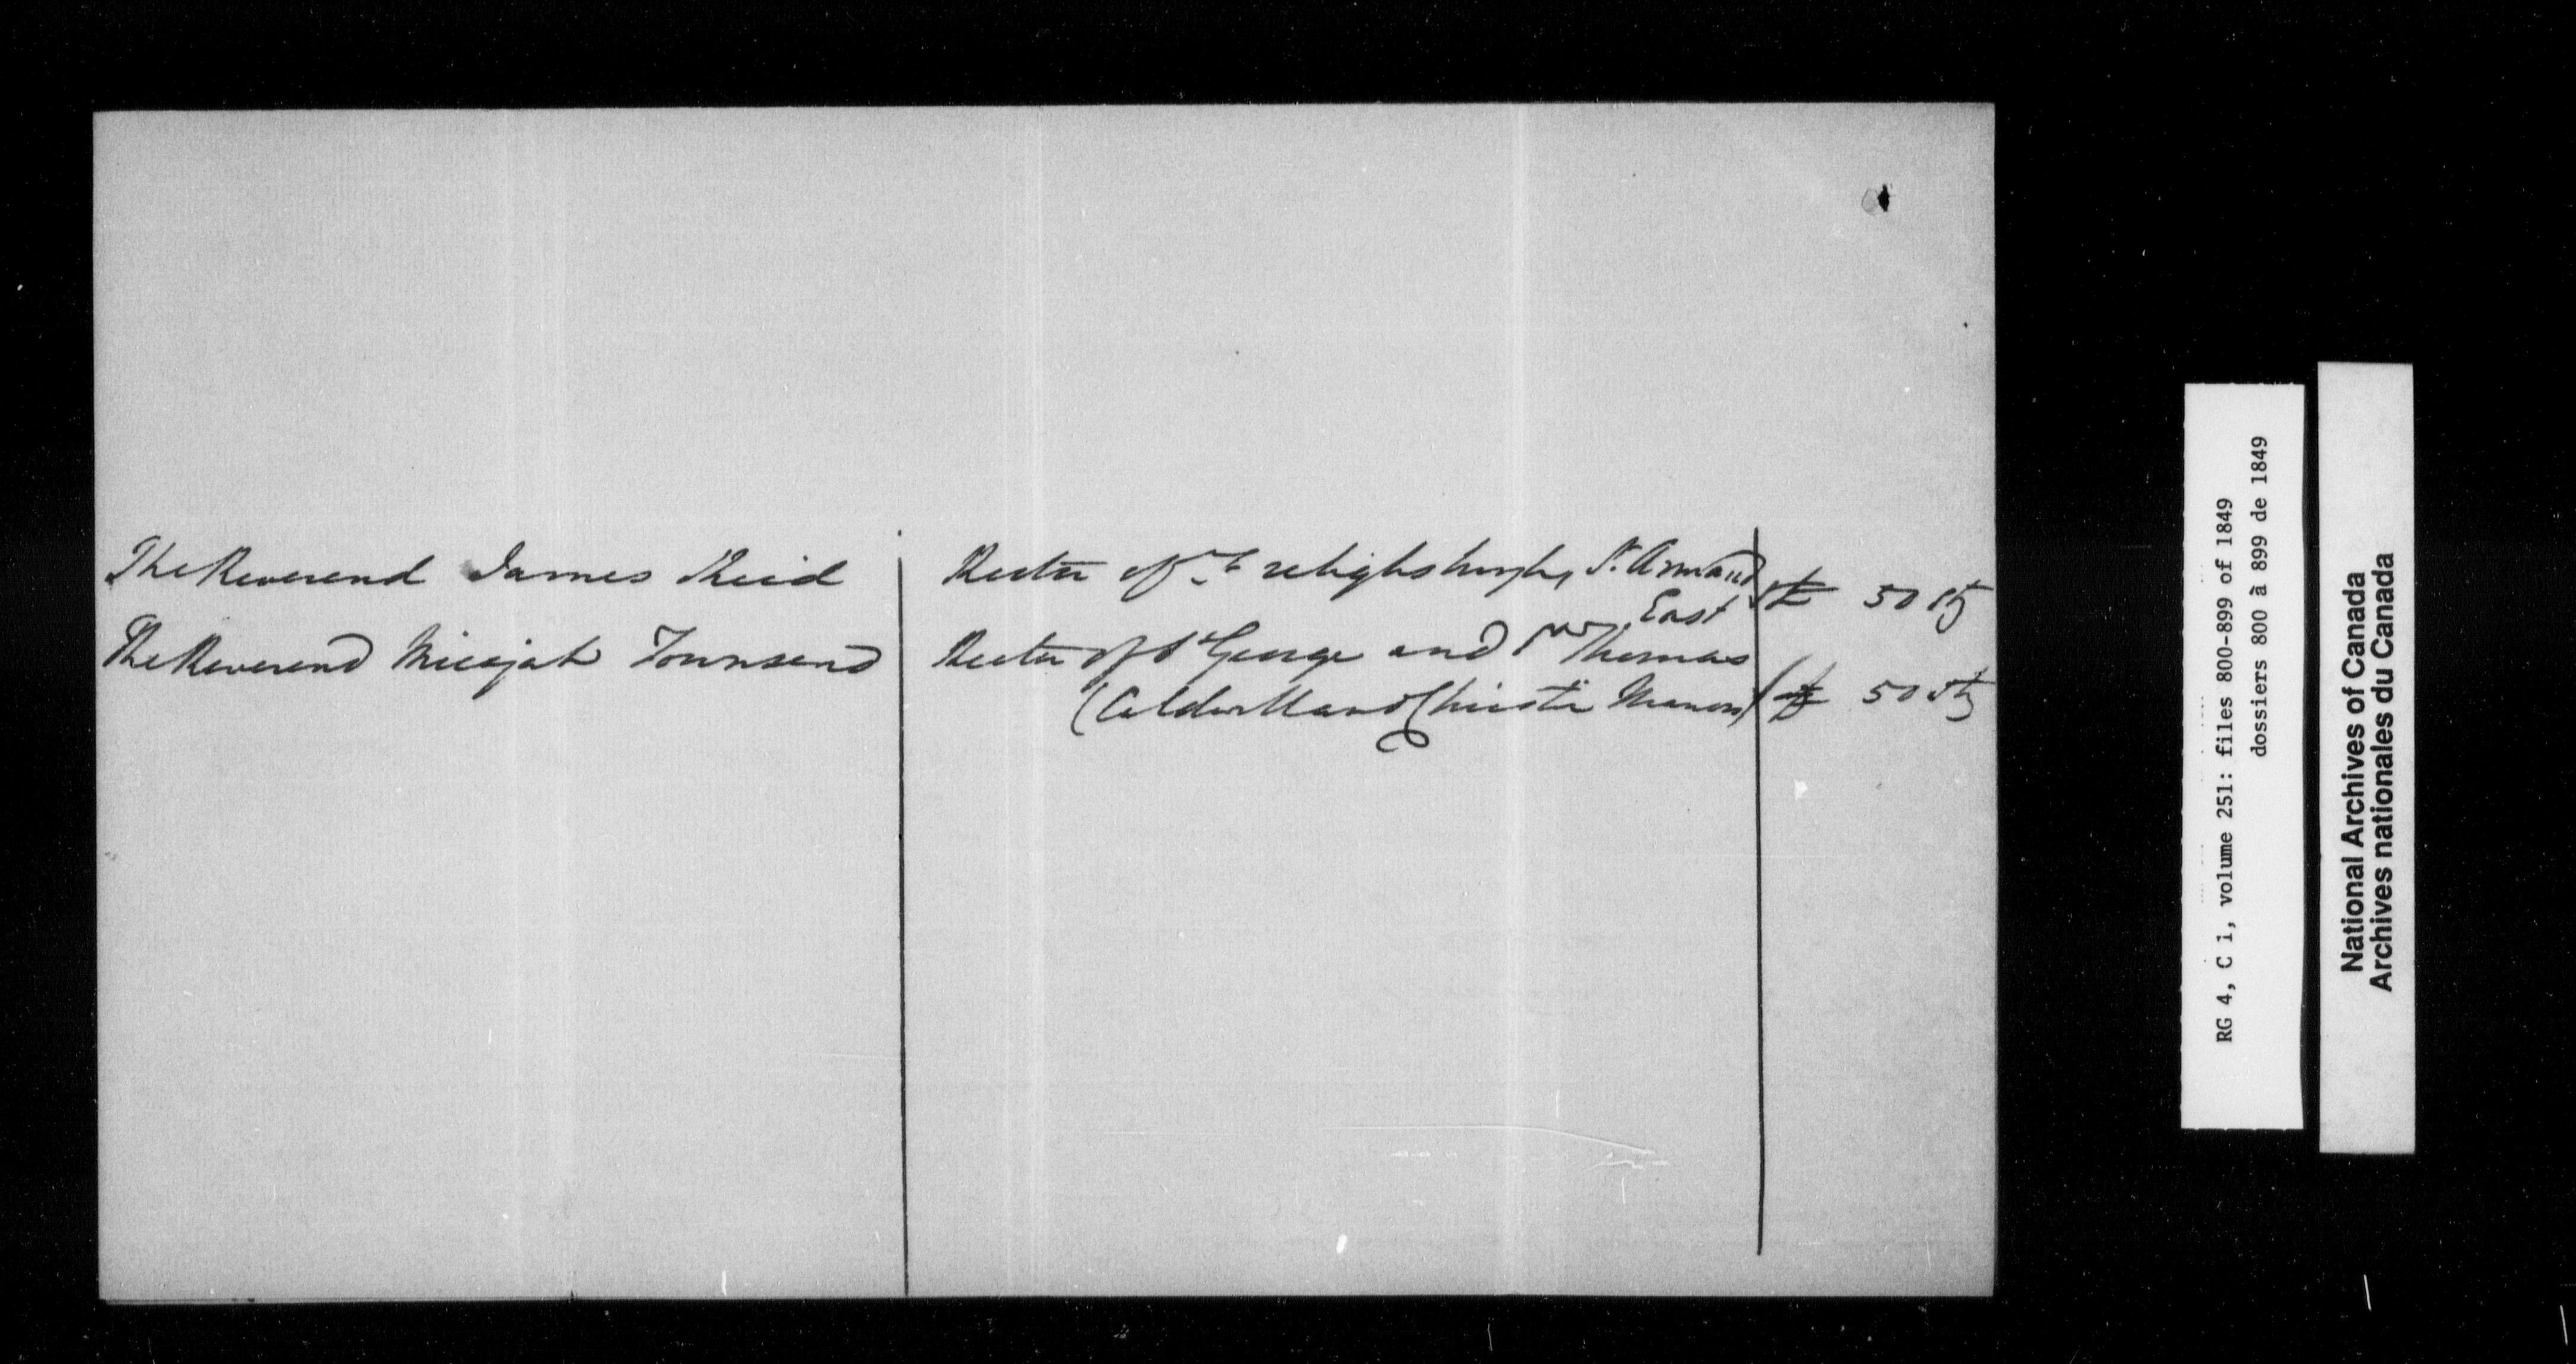 The Reverend James Reid Rector of Frelighsburgh, St. Armand East £ 50 stg
The Reverend Micajah Townsend Rector of St George and St Thomas
(Caldwell and Christie Manors) £ 50 stg
RG 4, C 1, volume 251: files 800-899 of 1849
dossiers 800 à 899 de 1849
National Archives of Canada
Archives nationales du Canada